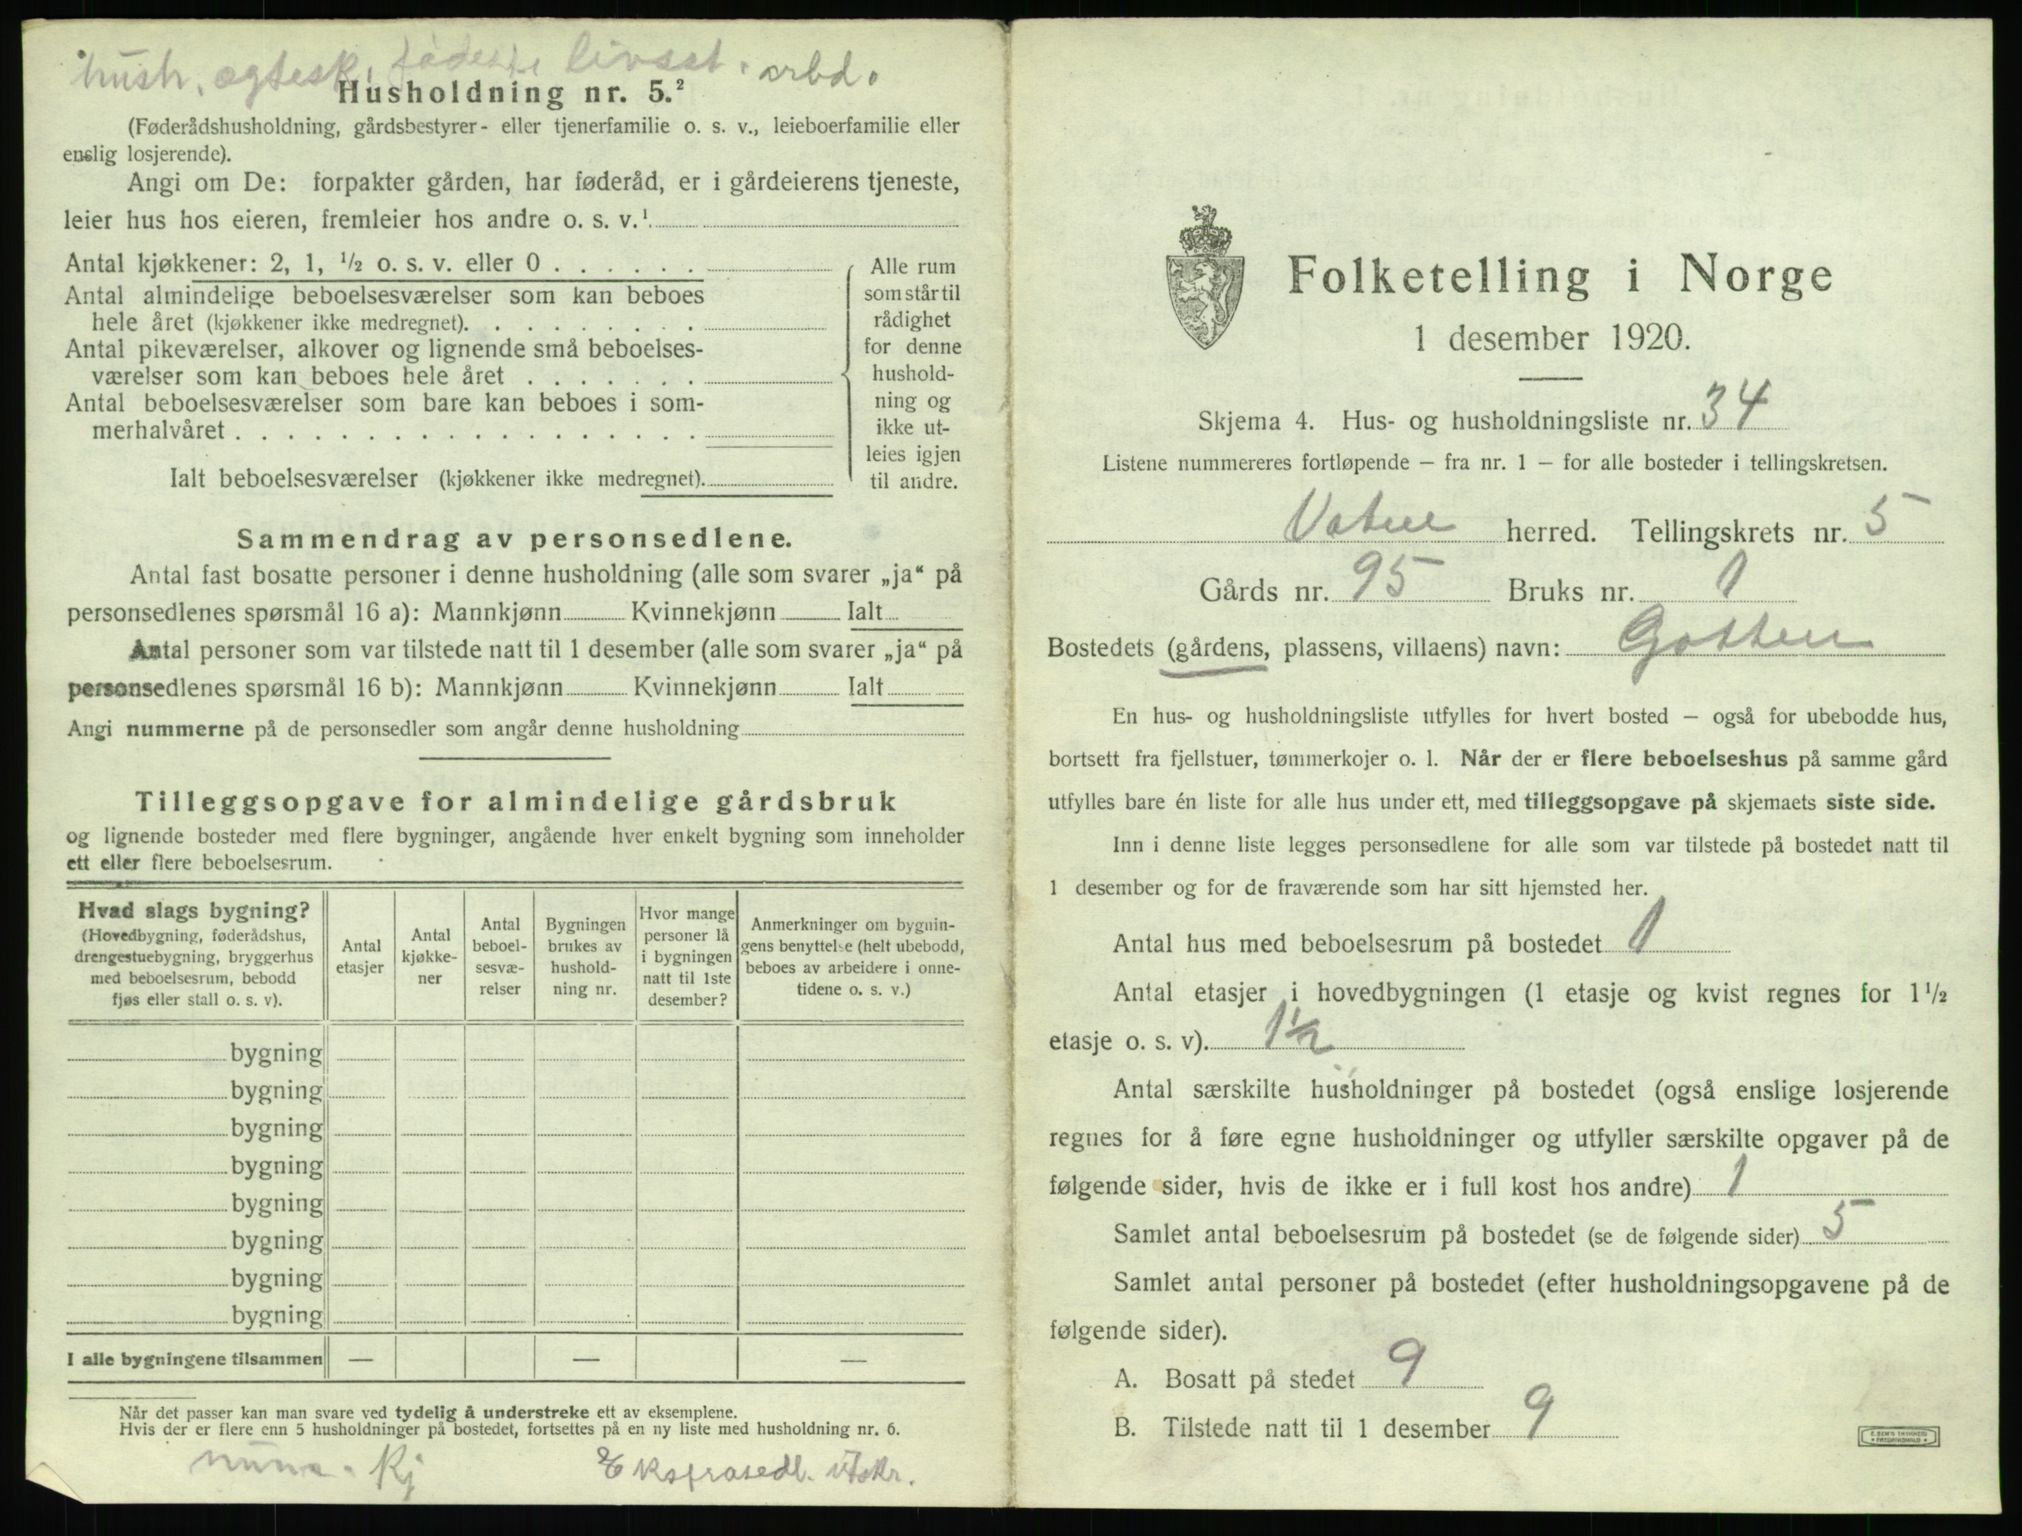 hush. egtesk. fødest. livsst. arbd.
Husholdning nr. 5.²
(Føderådshusholdning, gårdsbestyrer- eller tjenerfamilie o. s. v., leieboerfamilie eller
enslig losjerende).
Angi om De: forpakter gården, har føderåd, er i gårdeierens tjeneste,
leier hus hos eieren, fremleier hos andre o. s. v.¹
Antal kjøkkener: 2, 1, ½ o. s. v. eller 0 . . . . . .
Antal almindelige beboelsesværelser som kan beboes
hele året (kjøkkener ikke medregnet). . . . . . . . .
Antal pikeværelser, alkover og lignende små beboelses-
værelser som kan beboes hele året . . . . . . .
Antal beboelsesværelser som bare kan beboes i som-
merhalvåret . . . . . . . . . . . . . . . . . .
Ialt beboelsesværelser (kjøkkener ikke medregnet).
Alle rum
som står til
rådighet
for denne
hushold-
ning og
ikke ut-
leies igjen
til andre.
Sammendrag av personsedlene.
Antal fast bosatte personer i denne husholdning (alle som svarer „ja“ på
personsedlenes spørsmål 16 a): Mannkjønn Kvinnekjønn Ialt
Antal personer som var tilstede natt til 1 desember (alle som svarer „ja“ på
personsedlenes spørsmål 16 b): Mannkjønn Kvinnekjønn Ialt
Angi nummerne på de personsedler som angår denne husholdning
Tilleggsopgave for almindelige gårdsbruk
og lignende bosteder med flere bygninger, angående hver enkelt bygning som inneholder
ett eller flere beboelsesrum.
Hvad slags bygning?
(Hovedbygning, føderådshus,
drengestuebygning, bryggerhus
med beboelsesrum, bebodd
fjøs eller stall o. s. v).
Antal
etasjer
Antal
kjøkke-
ner
Antal
beboel-
sesvæ-
relser
Bygningen
brukes av
hushold-
ning nr.
Hvor mange
personer lå
i bygningen
natt til 1ste
desember?
Anmerkninger om bygnin-
gens benyttelse (helt ubebodd,
beboes av arbeidere i onne-
tidene o. s. v.)
bygning
bygning
bygning
bygning
bygning
bygning
bygning
bygning
I alle bygningene tilsammen — — —
Når det passer kan man svare ved tydelig å understreke ett av eksemplene.
Hvis der er flere enn 5 husholdninger på bostedet, fortsettes på en ny liste med husholdning nr. 6.
Kj Ekstrasedl. utskr.
Folketelling i Norge
1 desember 1920.
Skjema 4. Hus- og husholdningsliste nr. 34
Listene nummereres fortløpende – fra nr. 1 – for alle bosteder i tellingskretsen.
Vatne herred. Tellingskrets nr. 5
Gårds nr. 95 Bruks nr. 1
Bostedets (gårdens, plassens, villaens) navn: Gotten
En hus- og husholdningsliste utfylles for hvert bosted – også for ubebodde hus,
bortsett fra fjellstuer, tømmerkojer o. l. Når der er flere beboelseshus på samme gård
utfylles bare én liste for alle hus under ett, med tilleggsopgave på skjemaets siste side.
Inn i denne liste legges personsedlene for alle som var tilstede på bostedet natt til
1 desember og for de fraværende som har sitt hjemsted her.
Antal hus med beboelsesrum på bostedet 1
Antal etasjer i hovedbygningen (1 etasje og kvist regnes for 1½
etasje o. s. v). 1½
Antal særskilte husholdninger på bostedet (også enslige losjerende
regnes for å føre egne husholdninger og utfyller særskilte opgaver på de
følgende sider, hvis de ikke er i full kost hos andre) 1
Samlet antal beboelsesrum på bostedet (se de følgende sider) 5
Samlet antal personer på bostedet (efter husholdningsopgavene på de
følgende sider).
A. Bosatt på stedet 9
B. Tilstede natt til 1 desember 9